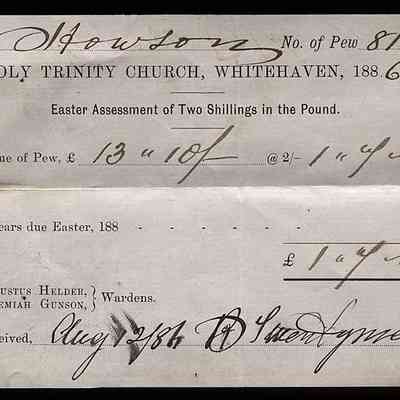 Howson No. of Pew 81
OLY TRINITY CHURCH, WHITEHAVEN, 1886
Easter Assessment of Two Shillings in the Pound.
ue of Pew, £ 13 " 10/ @ 2/- 1 " 7 "
ears due Easter, 188 - - - - - -
£ 1 " 7 "
USTUS HELDER,
EMIAH GUNSON, } Wardens.
eived, Aug 12/86